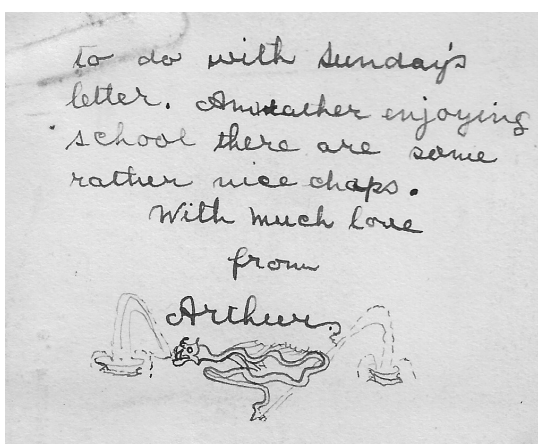 to do with Sunday's
letter. Am rather enjoying
school there are some
rather nice chaps.
With much love
from
Arthur.